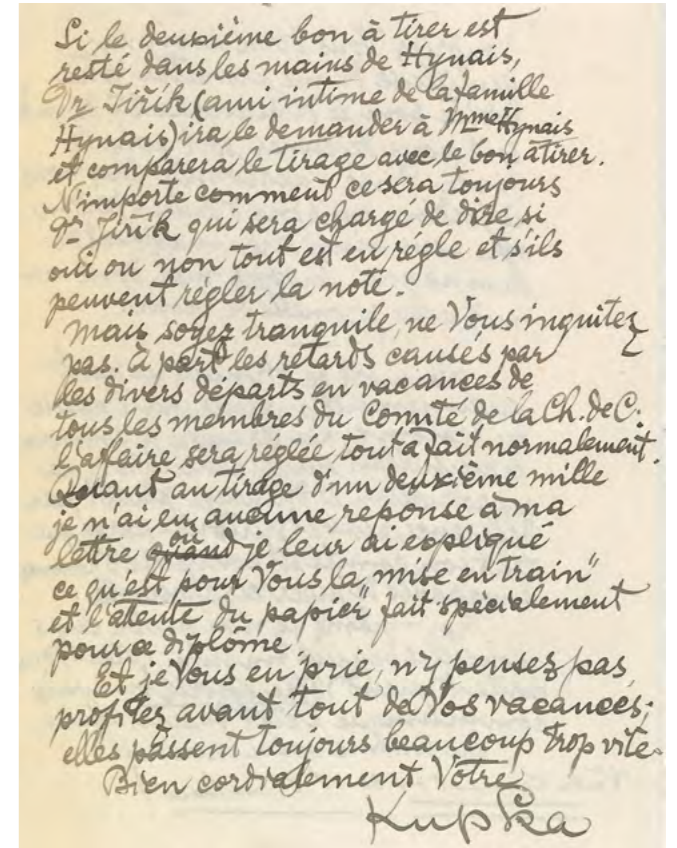 Si le deuxième bon à tirer est
resté dans les mains de Hynais,
Dr Jiřík (ami intime de la famille
Hynais) ira le demander à Mme Hynais
et comparera le tirage avec le bon à tirer.
N'importe comment ce sera toujours
Dr Jiřík qui sera chargé de dire si
oui ou non tout est en règle et s'ils
peuvent régler la note.
Mais soyez tranquile, ne Vous inquitez
pas. A part les retards causés par
les divers départs en vacances de
tous les membres du Comité de la Ch. de C.
l'affaire sera réglée tout à fait normalement.
Quant au tirage d'un deuxième mille
je n'ai eu aucune reponse à ma
lettre où je leur ai expliqué
ce qu'est pour Vous la „mise en train"
et l'attente du papier" fait spécialement
pour ce diplôme.
Et je Vous en prie, n'y pensez pas,
profitez avant tout de Vos vacances;
elles passent toujours beaucoup trop vite.
Bien cordialement Votre
Kupka